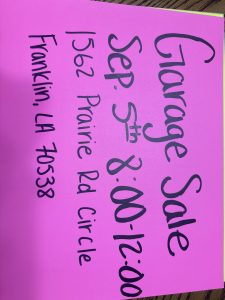 Garage Sale
Sep. 5th 8:00-12:00
1562 Prairie Rd Circle
Franklin, LA 70538